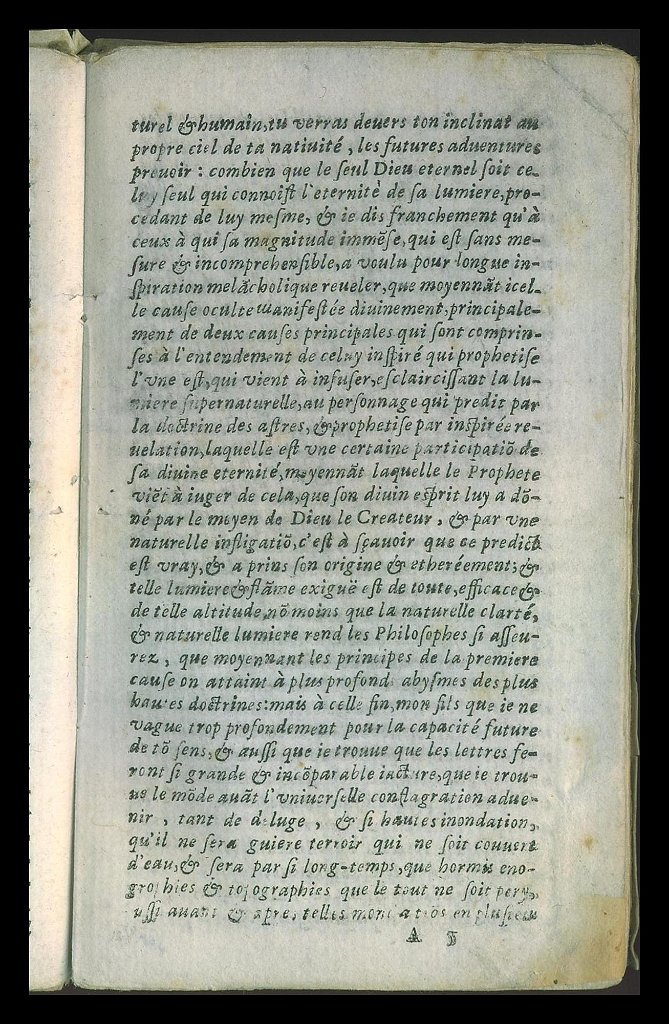 turel & humain, tu verras deuers ton inclinat au
propre ciel de ta natiuité, les futures aduentures
preuoir : combien que le ſeul Dieu eternel ſoit ce-
luy ſeul qui connoiſt l'eternité de ſa lumiere, pro-
cedant de luy meſme, & ie dis franchement qu'à
ceux à qui ſa magnitude immẽſe, qui eſt ſans me-
ſure & incomprehenſible, a voulu pour longue in-
ſpiration melãcholique reueler, que moyennãt icel-
le cauſe oculte manifeſtée diuinement, principale-
ment de deux cauſes principales qui ſont comprin-
ſes à l'entendement de celuy inſpiré qui prophetiſe
l'vne eſt, qui vient à infuſer, eſclairciſſant la lu-
miere ſupernaturelle, au perſonnage qui predit par
la doctrine des aſtres, & prophetiſe par inſpirée re-
uelation, laquelle eſt vne certaine participatiõ de
ſa diuine eternité, moyennãt laquelle le Prophete
viẽt à iuger de cela, que ſon diuin eſprit luy a dõ-
né par le moyen de Dieu le Createur, & par vne
naturelle inſligatiõ, c'eſt à ſçauoir que ce predict
eſt vray, & a prins ſon origine & etheréement; &
telle lumiere & flãme exiguë eſt de toute, efficace &
de telle altitude, nõ moins que la naturelle clarté,
& naturelle lumiere rend les Philoſophes ſi aſſeu-
rez, que moyennant les principes de la premiere
cauſe on attaint à plus profonds abyſmes des plus
hautes doctrines: mais à celle fin, mon fils que ie ne
vague trop profondement pour la capacité future
de tõ ſens, & auſſi que ie trouue que les lettres fe-
ront ſi grande & incõparable iacture, que ie trou-
ue le mõde auãt l'vniuerſelle conflagration adue-
nir, tant de deluge, & ſi hautes inondation,
qu'il ne ſera guiere terroir qui ne ſoit couuert
d'eau, & ſera par ſi long-temps, que hormis eno-
grophies & topographies que le tout ne ſoit pery,
uſſi auant & apres telles en pluſieu
A 3